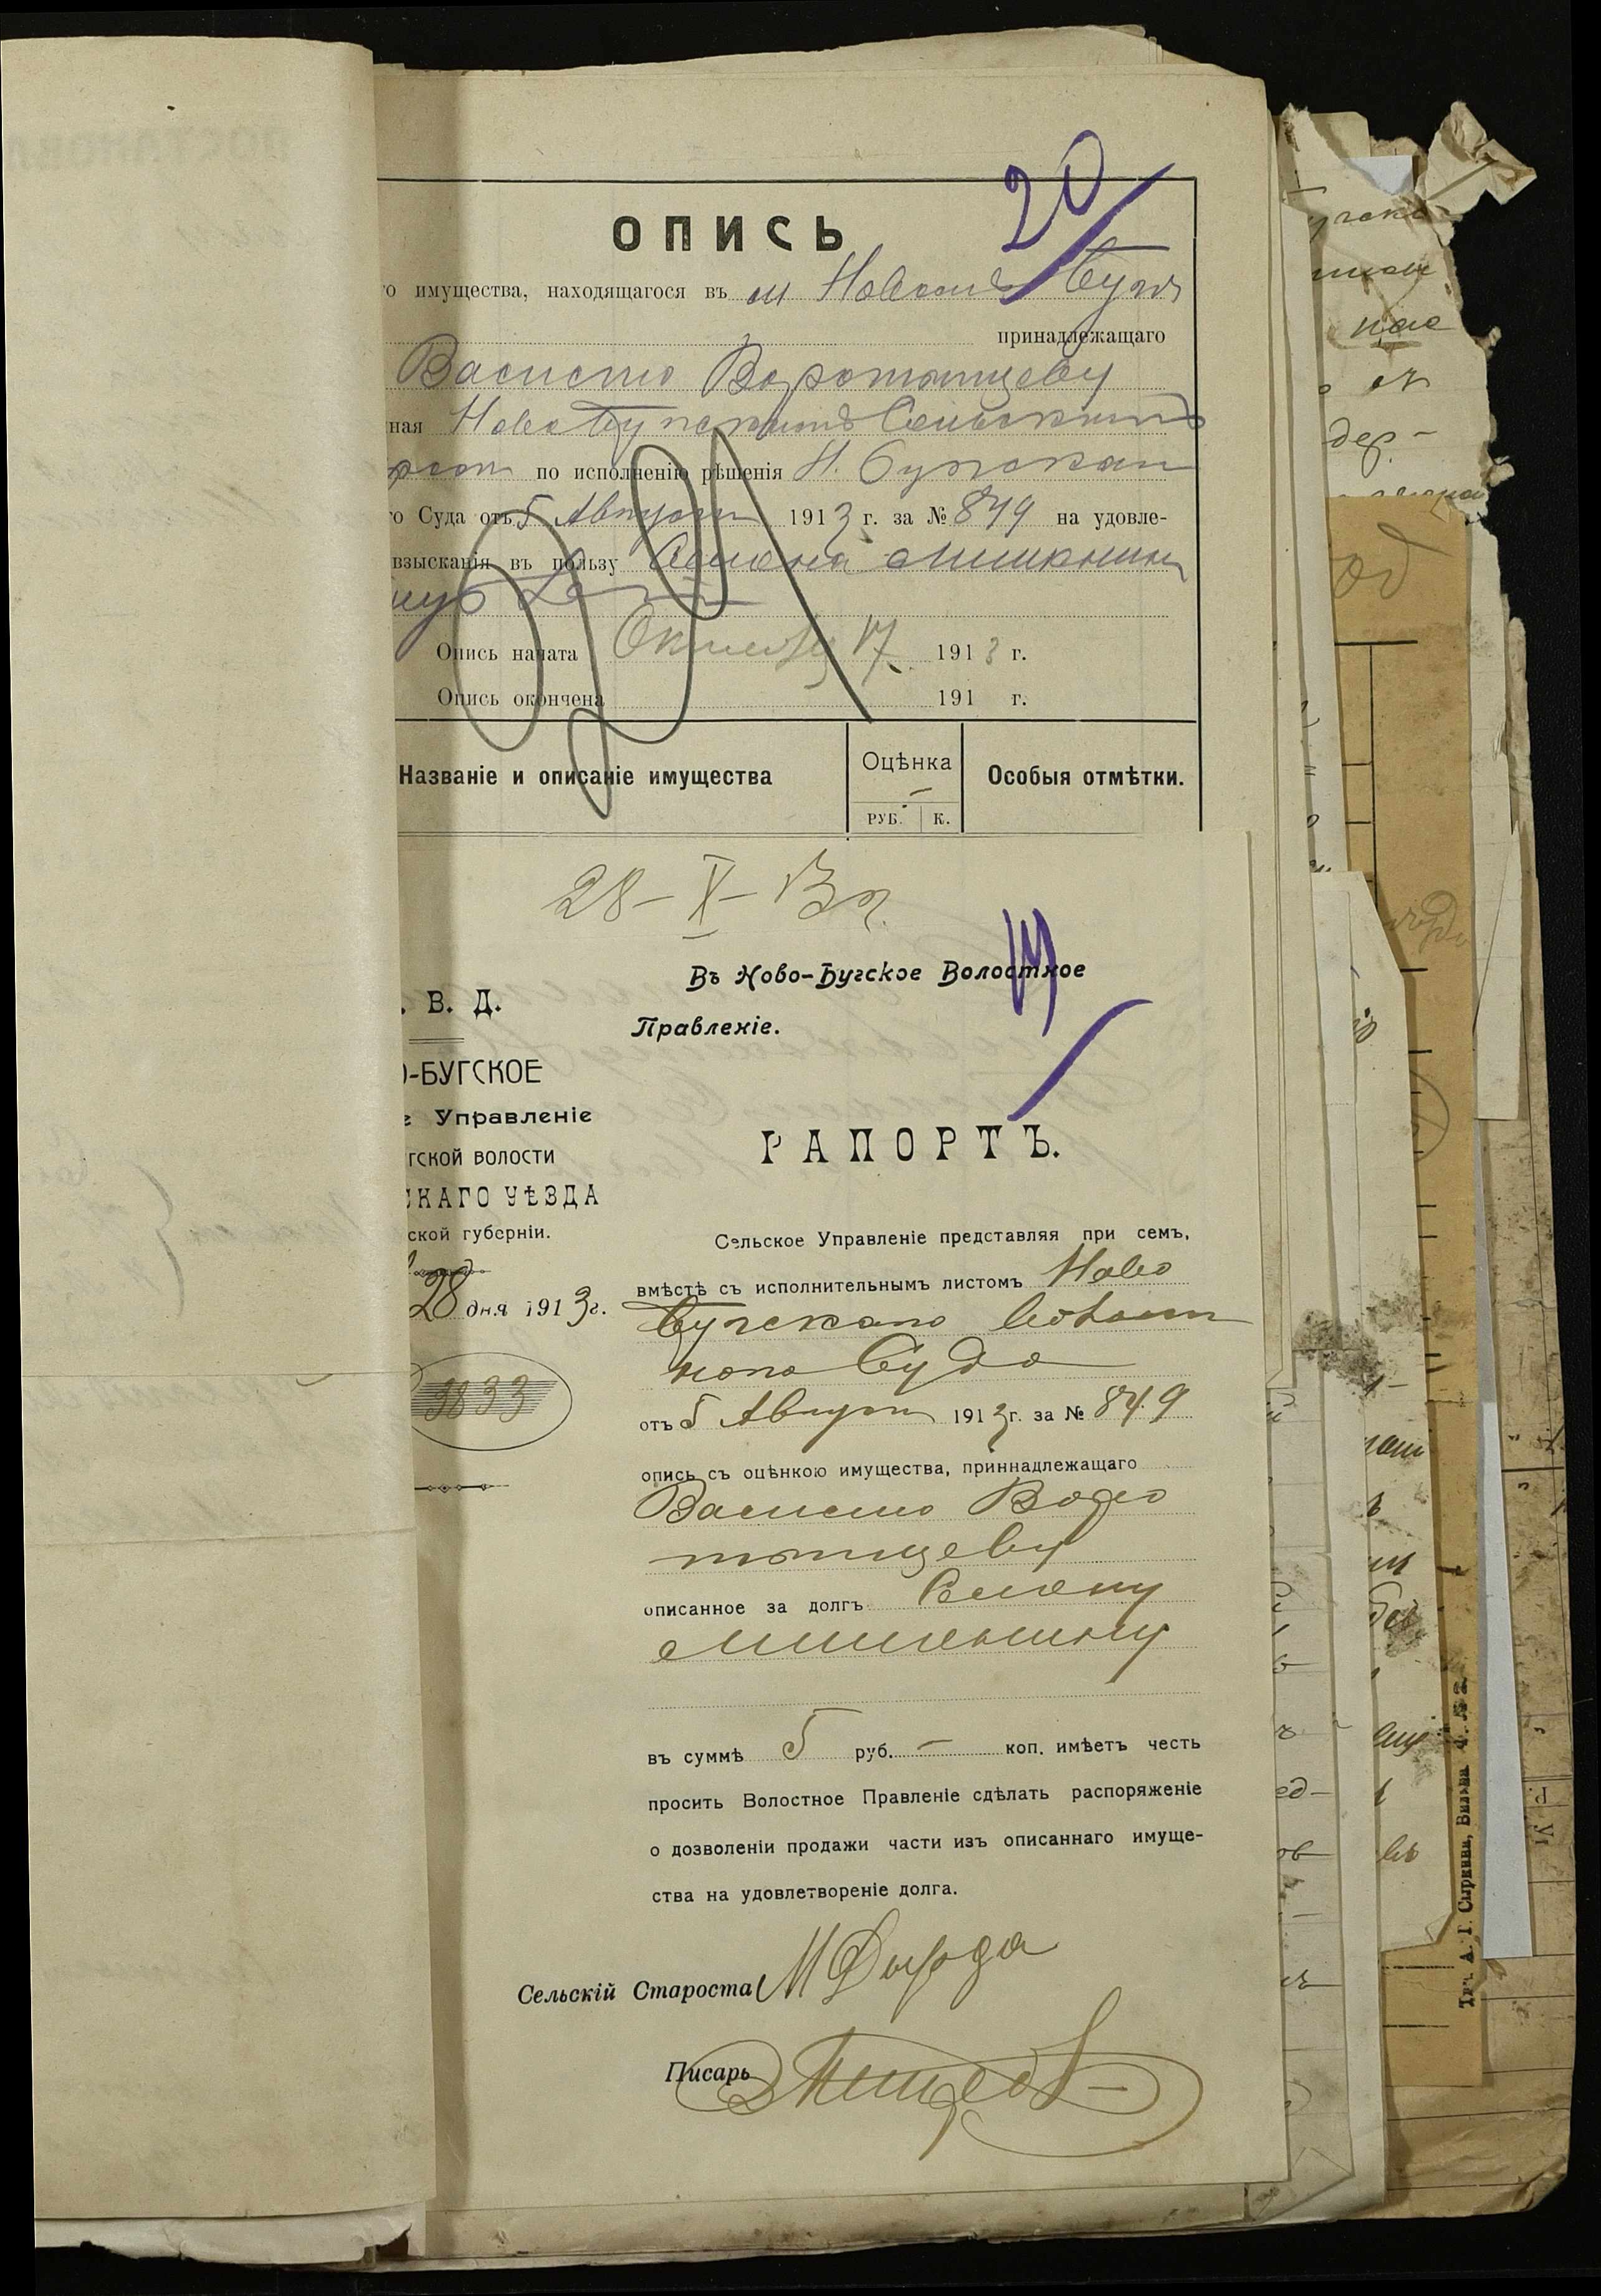 20
ОПИСЬ
го имущества, находящагося въ м Новомъ Бугѣ
принадлежащаго
Василію Воротынцеву
ная НовоБугскимъ Сельскимъ
по исполненію рѣшенія Н. Бугскаго
го Суда отъ 5 Августа 1913 г. за № 849 на удовле-
взысканія въ пользу Семена
Опись начата Октября 17 1913 г.
Опись окончена 191 г.
Названіе и описаніе имущества
Оцѣнка
РУБ. К.
Особыя отмѣтки.
28-X-13 г.
19
Въ Ново-Бугское Волостное
Правленіе.
. В. Д.
О-БУГСКОЕ
е Управленіе
ГСКОЙ ВОЛОСТИ
СКАГО УѢЗДА
ской губерніи.
28 дня 1913 г.
3833
РАПОРТЪ.
Сельское Управленіе представляя при семъ,
вмѣстѣ съ исполнительнымъ листомъ Ново
Бугскаго Волост
ного Суда
отъ 5 Августа 1913 г. за № 849
опись съ оцѣнкою имущества, приннадлежащаго
Василію Воро
тынцеву
описанное за долгъ Семену
въ суммѣ 5 руб. — коп. имѣетъ честь
просить Волостное Правленіе сдѣлать распоряженіе
о дозволеніи продажи части изъ описаннаго имуще-
ства на удовлетвореніе долга.
Сельскій Староста
Писарь
Тип. А. Г. Сыркина, Вильна